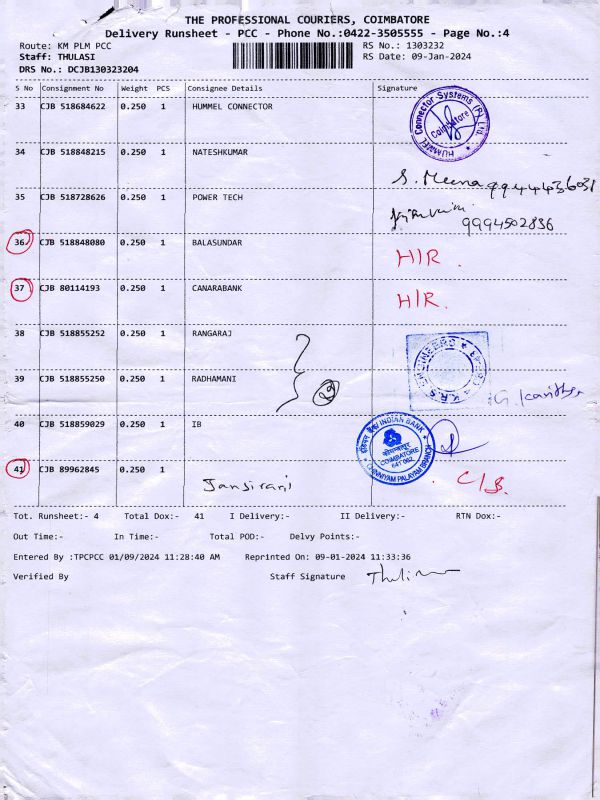 THE PROFESSIONAL COURIERS, COIMBATORE
Delivery Runsheet - PCC - Phone No.:0422-3505555 - Page No.:4
Route: KM PLM PCC RS No.: 1303232
Staff: THULASI RS Date: 09-Jan-2024
DRS No.: DCJB130323204
S No Consignment No Weight PCS Consignee Details Signature
33 CJB 518684622 0.250 1 HUMMEL CONNECTOR
HUMMEL Connector Systems (P) Ltd. Coimbatore
34 CJB 518848215 0.250 1 NATESHKUMAR
S. Meena 9944436031
35 CJB 518728626 0.250 1 POWER TECH
9994502836
36 CJB 518848080 0.250 1 BALASUNDAR
H/R.
37 CJB 80114193 0.250 1 CANARABANK
H/R.
38 CJB 518855252 0.250 1 RANGARAJ
K.R.S ENGINEERS
39 CJB 518855250 0.250 1 RADHAMANI
2
40 CJB 518859029 0.250 1 IB
INDIAN BANK
COIMBATORE
641 062
CHINNIYAM PALAYAM BRANCH
41 CJB 89962845 0.250 1
Jansirani C/B.
Tot. Runsheet:- 4 Total Dox:- 41 I Delivery:- II Delivery:- RTN Dox:-
Out Time:- In Time:- Total POD:- Delvy Points:-
Entered By :TPCPCC 01/09/2024 11:28:40 AM Reprinted On: 09-01-2024 11:33:36
Verified By Staff Signature